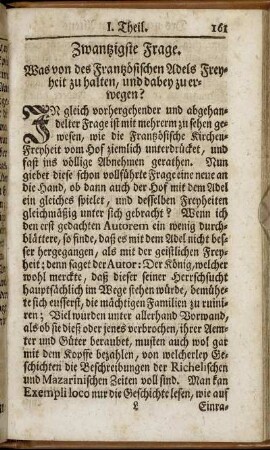 I. Theil. 161
Zwantzigste Frage.
Was von des Frantzösischen Adels Frey-
heit zu halten, und dabey zu er-
wegen?
IN gleich vorhergehender und abgehan-
delter Frage ist mit mehrern zu sehen ge-
wesen, wie die Frantzösische Kirchen-
Freyheit vom Hof ziemlich unterdrückt, und
fast ins völlige Abnehmen gerathen. Nun
giebet diese schon vollführte Frage eine neue an
die Hand, ob dann auch der Hof mit dem Adel
ein gleiches spielet, und desselben Freyheiten
gleichmäßig unter sich gebracht? Wenn ich
den erst gedachten Autorem ein wenig durch-
blättere, so finde, daß es mit dem Adel nicht bes-
ser hergegangen, als mit der geistlichen Frey-
heit; denn saget der Autor: Der König, welcher
wohl merckte, daß dieser seiner Herrschsucht
hauptsächlich im Wege stehen würde, bemühe-
te sich eusserst, die mächtigen Familien zu ruini-
ren; Viel wurden unter allerhand Vorwand,
als ob sie dieß oder jenes verbrochen, ihrer Aem-
ter und Güter beraubet, musten auch wol gar
mit dem Kopffe bezahlen, von welcherley Ge-
schichten die Beschreibungen der Richelischen
und Mazarinischen Zeiten voll sind. Man kan
Exempli loco nur die Geschichte lesen, wie auf
L Einra-